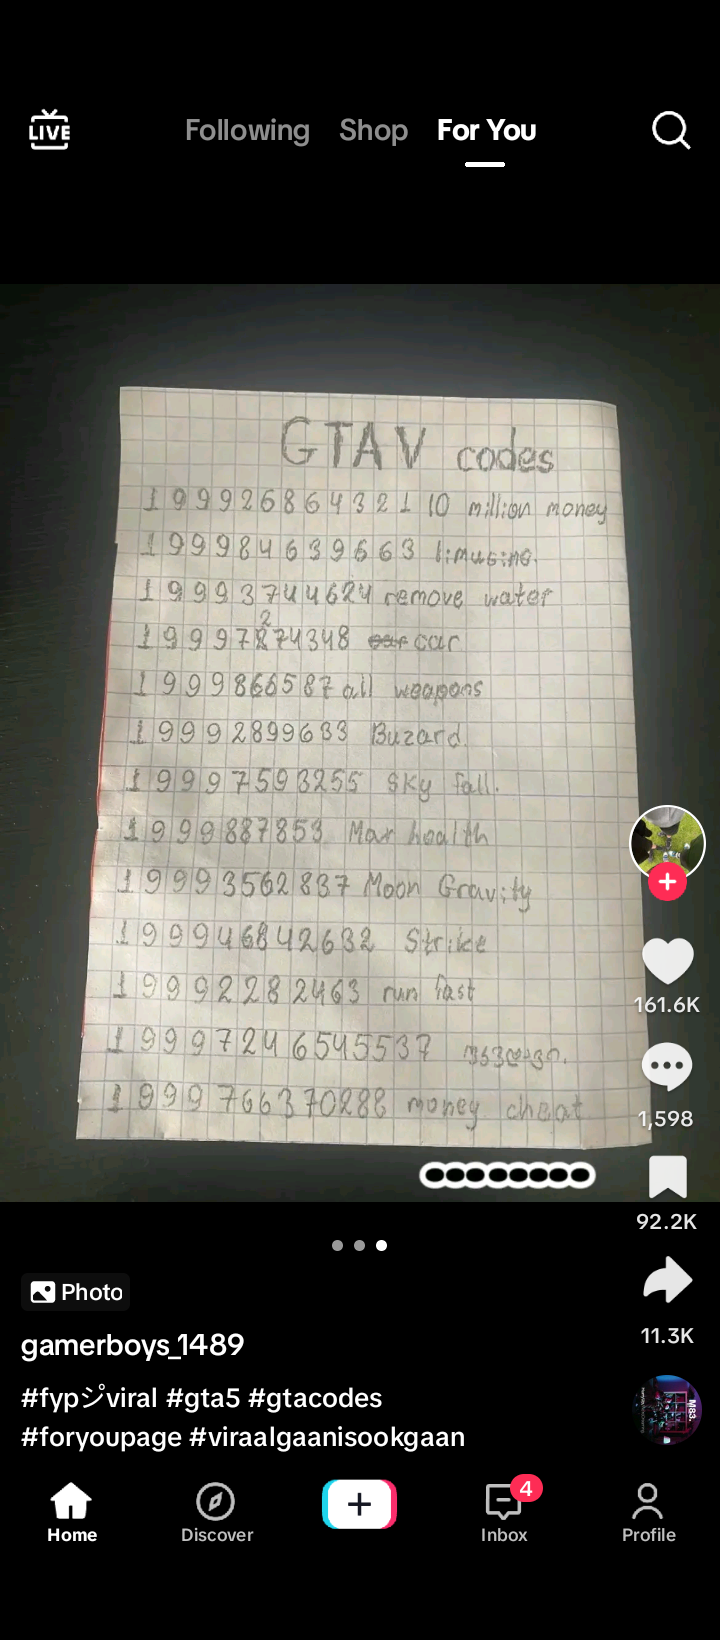 LIVE
Following Shop For You
GTAV codes
199926864321 10 million money
199984639663 limusine.
19993744624 remove water
2
19997874348 car
1999866587 all weapons
19992899633 Buzard.
19997593255 Sky fall.
1999887853 Max health
19993562837 Moon Gravity
199946842632 Strike
19992282463 run fast
19997246545537
1999766370288 money cheat
161.6K
1,598
92.2K
11.3K
Photo
gamerboys_1489
#fypシviral #gta5 #gtacodes
#foryoupage #viraalgaanisookgaan
M83.
4
Home Discover Inbox Profile